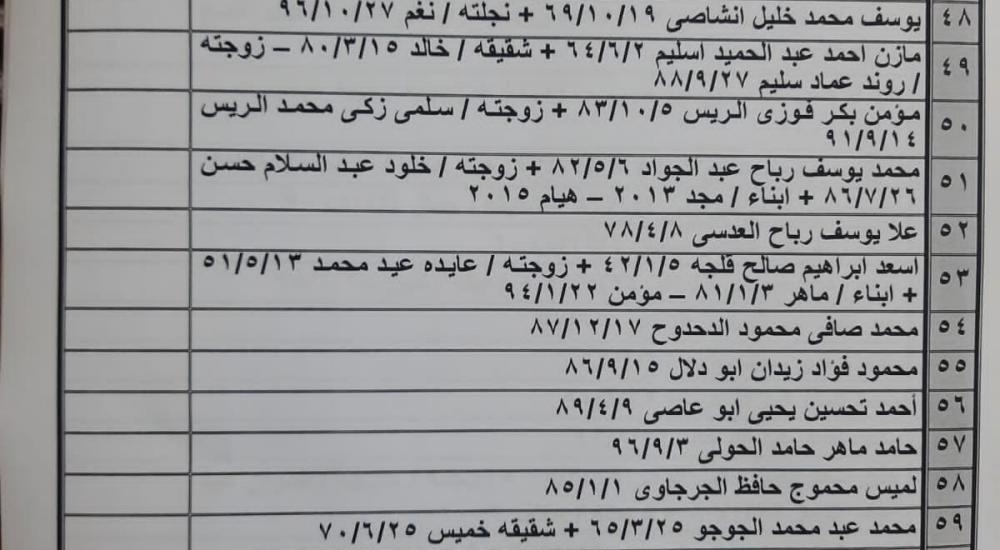 ٤٨ يوسف محمد خليل انشاصى ٦٩/١٠/١٩ + نجلته / نغم ٩٦/١٠/٢٧
٤٩ مازن احمد عبد الحميد اسليم ٦٤/٦/٢ + شقيقه / خالد ٨٠/٣/١٥ – زوجته
/ روند عماد سليم ٨٨/٩/٢٧
٥٠ مؤمن بكر فوزى الريس ٨٣/١٠/٥ + زوجته / سلمى زكى محمد الريس
٩١/٩/١٤
٥١ محمد يوسف رباح عبد الجواد ٨٢/٥/٦ + زوجته / خلود عبد السلام حسن
٨٦/٧/٢٦ + ابناء / مجد ٢٠١٣ – هيام ٢٠١٥
٥٢ علا يوسف رباح العدسى ٧٨/٤/٨
٥٣ اسعد ابراهيم صالح قلجه ٤٢/١/٥ + زوجته / عايده عيد محمد ٥١/٥/١٣
+ ابناء / ماهر ٨١/١/٣ – مؤمن ٩٤/١/٢٢
٥٤ محمد صافى محمود الدحدوح ٨٧/١٢/١٧
٥٥ محمود فؤاد زيدان ابو دلال ٨٦/٩/١٥
٥٦ أحمد تحسين يحيى ابو عاصى ٨٩/٤/٩
٥٧ حامد ماهر حامد الحولى ٩٦/٩/٣
٥٨ لميس محموج حافظ الجرجاوى ٨٥/١/١
٥٩ محمد عبد محمد الجوجو ٦٥/٣/٢٥ + شقيقه خميس ٧٠/٦/٢٥